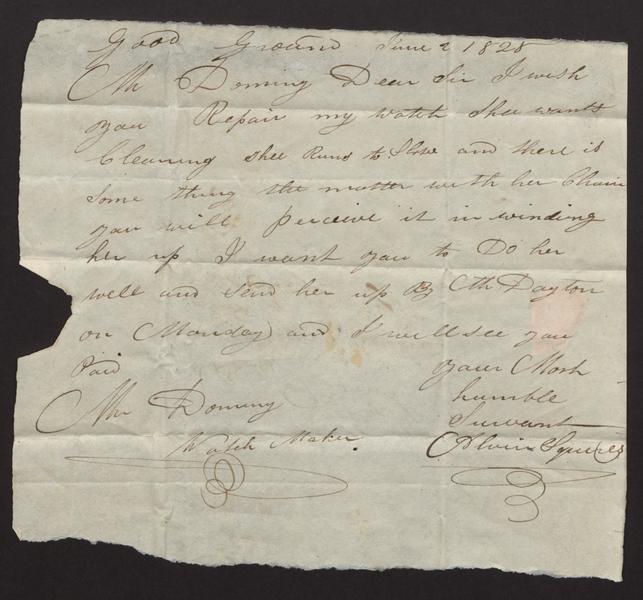 Good Ground June 2 1828
Mr Doming Dear Sir I wish
you Repair my watch Shee wants
Cleaning shee Runs to Slow and there is
Some thing the matter with her Chain
you will perceive it in winding
her up I want you to Do her
well and Send her up By Mr Dayton
on Monday and I will see you
Paid your Most
humble
Survant
Mr Doming
Watch Maker Alvin Squires